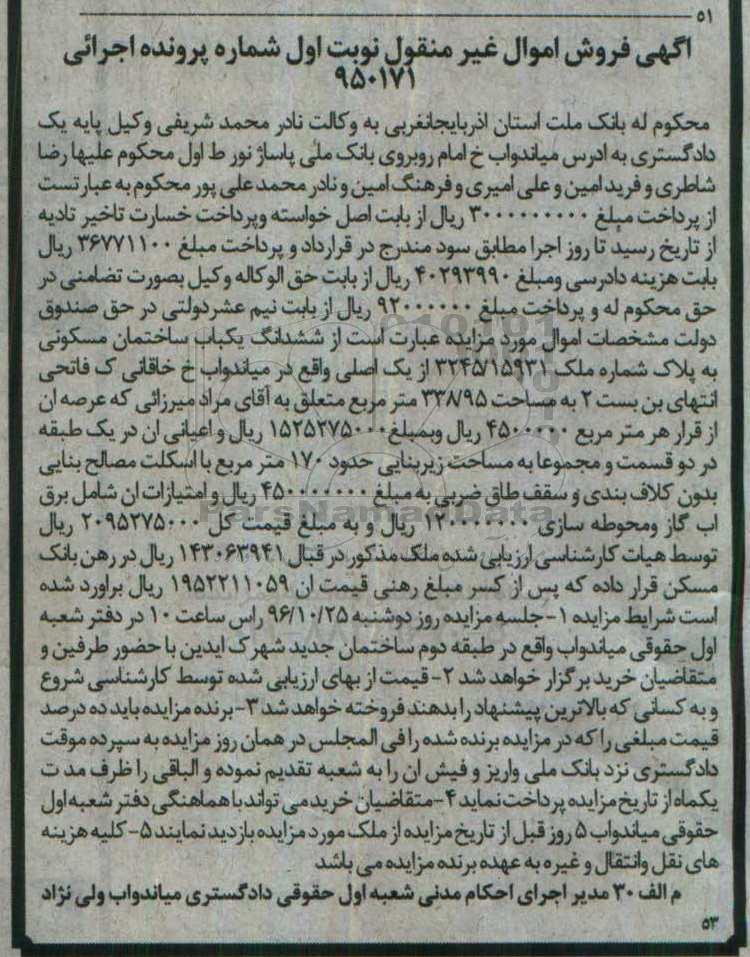 ۵۱
اگهی فروش اموال غیر منقول نوبت اول شماره پرونده اجرائی
۹۵۰۱۷۱
محکوم له بانک ملت استان اذربایجانغربی به وکالت نادر محمد شریفی وکیل پایه یک
دادگستری به ادرس میاندواب خ امام روبروی بانک ملی پاساژ نور ط اول محکوم علیها رضا
شاطری و فرید امین و علی امیری و فرهنگ امین و نادر محمد علی پور محکوم به عبارتست
از پرداخت مبلغ ۳۰۰۰۰۰۰۰۰۰ ریال از بابت اصل خواسته وپرداخت خسارت تاخیر تادیه
از تاریخ رسید تا روز اجرا مطابق سود مندرج در قرارداد و پرداخت مبلغ ۳۶۷۷۱۱۰۰ ریال
بابت هزینه دادرسی ومبلغ ۴۰۲۹۳۹۹۰ ریال از بابت حق الوکاله وکیل بصورت تضامنی در
حق محکوم له و پرداخت مبلغ ۹۲۰۰۰۰۰۰ ریال از بابت نیم عشردولتی در حق صندوق
دولت مشخصات اموال مورد مزایده عبارت است از ششدانگ یکباب ساختمان مسکونی
به پلاک شماره ملک ۳۲۴۵/۱۵۹۳۱ از یک اصلی واقع در میاندواب خ خاقانی ک فاتحی
انتهای بن بست ۲ به مساحت ۳۳۸/۹۵ متر مربع متعلق به آقای مراد میرزائی که عرصه ان
از قرار هر متر مربع ۴۵۰۰۰۰۰ ریال وبمبلغ ۱۵۲۵۲۷۵۰۰۰ ریال و اعیانی ان در یک طبقه
در دو قسمت و مجموعا به مساحت زیربنایی حدود ۱۷۰ متر مربع با اسکلت مصالح بنایی
بدون کلاف بندی و سقف طاق ضربی به مبلغ ۴۵۰۰۰۰۰۰۰ ریال و امتیازات ان شامل برق
اب گاز ومحوطه سازی ۱۲۰۰۰۰۰۰۰ ریال و به مبلغ قیمت کل ۲۰۹۵۲۷۵۰۰۰ ریال
توسط هیات کارشناسی ارزیابی شده ملک مذکور در قبال ۱۴۳۰۶۳۹۴۱ ریال در رهن بانک
مسکن قرار داده که پس از کسر مبلغ رهنی قیمت ان ۱۹۵۲۲۱۱۰۵۹ ریال براورد شده
است شرایط مزایده ۱- جلسه مزایده روز دوشنبه ۹۶/۱۰/۲۵ راس ساعت ۱۰ در دفتر شعبه
اول حقوقی میاندواب واقع در طبقه دوم ساختمان جدید شهرک ایدین با حضور طرفین و
متقاضیان خرید برگزار خواهد شد ۲- قیمت از بهای ارزیابی شده توسط کارشناسی شروع
و به کسانی که بالاترین پیشنهاد را بدهند فروخته خواهد شد ۳- برنده مزایده باید ده درصد
قیمت مبلغی را که در مزایده برنده شده را فی المجلس در همان روز مزایده به سپرده موقت
دادگستری نزد بانک ملی واریز و فیش ان را به شعبه تقدیم نموده و الباقی را ظرف مدت
یکماه از تاریخ مزایده پرداخت نماید ۴- متقاضیان خرید می تواند با هماهنگی دفتر شعبه اول
حقوقی میاندواب ۵ روز قبل از تاریخ مزایده از ملک مورد مزایده بازدید نمایند ۵- کلیه هزینه
های نقل وانتقال و غیره به عهده برنده مزایده می باشد
م الف ۳۰ مدیر اجرای احکام مدنی شعبه اول حقوقی دادگستری میاندواب ولی نژاد
۵۳
ParsNamadData